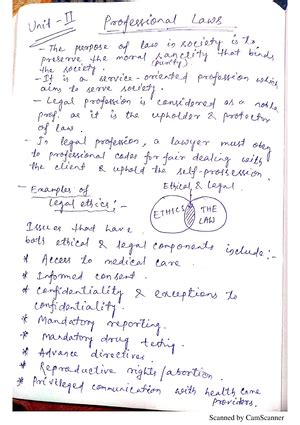 Unit - II Professional Laws
- The purpose of law in society is to
preserve the moral sanctity that binds
(purity)
the society.
- It is a service-oriented profession which
aims to serve society.
- Legal profession is considered as a noble
prof. as it is the upholder & protector
of law.
- In legal profession, a lawyer must obey
to professional codes for fair dealing with
the client & uphold the self-profession.
Ethical & legal
- Examples of
legal ethics:-
ETHICS THE
LAW
Issues that have
both ethical & legal components include:-
* Access to medical care.
* Informed consent.
* Confidentiality & exceptions to
confidentiality.
* Mandatory reporting.
* Mandatory drug testing.
* Advance directives.
* Reproductive rights/abortion.
* Privileged communication with health care
providers.
Scanned by CamScanner